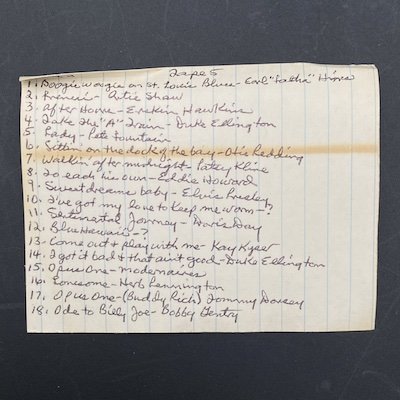 Tape 5
1. Boogie woogie on St. Louis Blues - Earl "Fatha" Hines
2. Frenesi - Artie Shaw
3. After Hours - Erskin Hawkins
4. Take The "A" Train - Duke Ellington
5. Lady - Pete Fountain
6. Sittin' on the dock of the bay - Otis Redding
7. Walkin' after midnight - Patsy Kline
8. To each his own - Eddie Howard
9. Sweet dreams baby - Elvis Presley?
10. I've got my love to keep me warm - ?
11. Sentimental Journey - Doris Day
12. Blue Hawaii - ?
13. Come out & play with me - Kay Kyser
14. I got it bad & that aint good - Duke Ellington
15. Opus One - modernaires
16. Lonesome - Herb
17. Opus One - (Buddy Rich) Tommy Dorsey
18. Ode to Billy Joe - Bobby Gentry